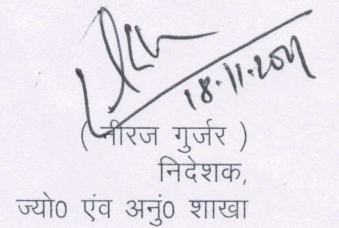 18.11.2011
( नीरज गुर्जर )
निदेशक,
ज्यो0 एंव अनुं0 शाखा